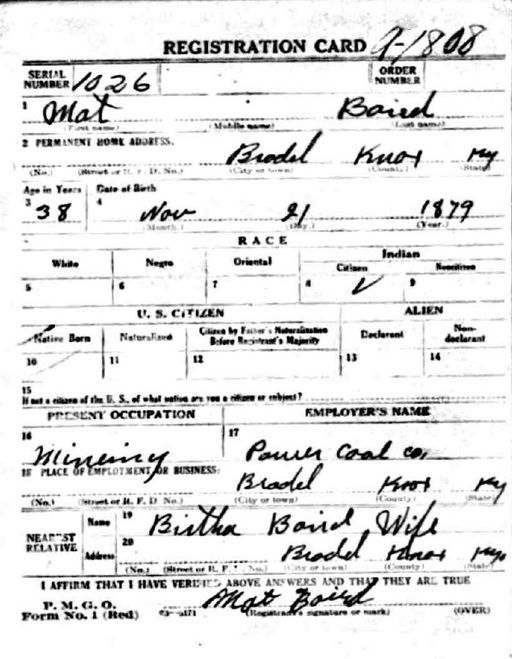 REGISTRATION CARD A-1808
SERIAL NUMBER 1026 ORDER NUMBER
1 Mat Baird
(First name) (Middle name) (Last name)
2 PERMANENT HOME ADDRESS:
Bradel Knox Ky
(No.) (Street or R. F. D. No.) (City or town) (County) (State)
Age in Years Date of Birth
3 38 4 Nov 21 1879
(Month.) (Day.) (Year.)
RACE
White Negro Oriental Indian
Citizen Noncitizen
5 6 7 8 ✓ 9
U. S. CITIZEN ALIEN
Native Born Naturalized Citizen by Father's Naturalization Before Registrant's Majority Declarant Non-declarant
10 11 12 13 14
15
If not a citizen of the U. S., of what nation are you a citizen or subject?
PRESENT OCCUPATION EMPLOYER'S NAME
16 Mineing 17 Power Coal co.
18 PLACE OF EMPLOYMENT OR BUSINESS:
Bradel Knox Ky
(No.) (Street or R. F. D. No.) (City or town) (County) (State)
NEAREST RELATIVE
Name 19 Birtha Baird Wife
Address 20 Bradel Knox Ky
(No.) (Street or R. F. D. No.) (City or town) (County) (State)
I AFFIRM THAT I HAVE VERIFIED ABOVE ANSWERS AND THAT THEY ARE TRUE
P. M. G. O.
Form No. 1 (Red) Mat Baird
(Registrant's signature or mark) (OVER)